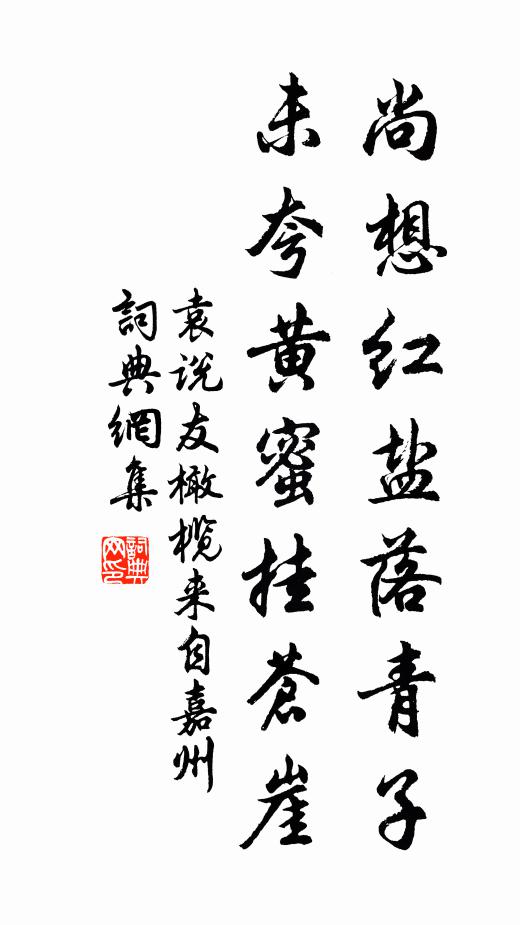 尚想红盐落青子
未夸黄蜜挂苍崖
袁说友橄榄来自嘉州
詞典網集
詞典网印